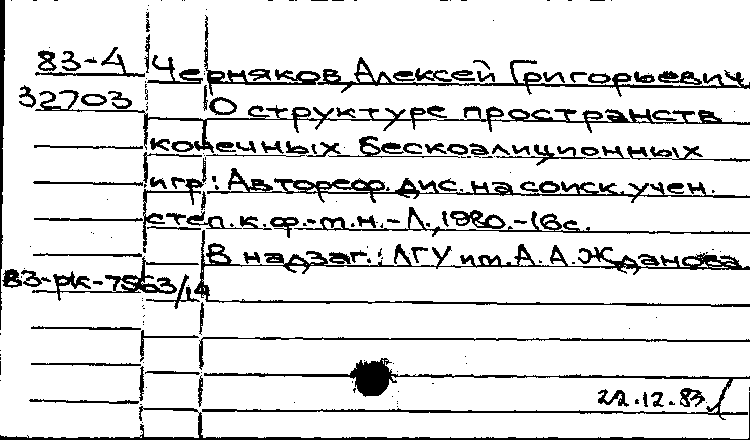 83-4 Черняков, Алексей Григорьевич
32703 О структуре пространств
конечных бескоалиционных
игр: Автореф. дис. на соиск. учен.
степ. к. ф.-т. н. - Л., 1980. - 16 с.
В надзаг.: ЛГУ им. А. А. Жданова
83-рк-7563/14
22.12.83